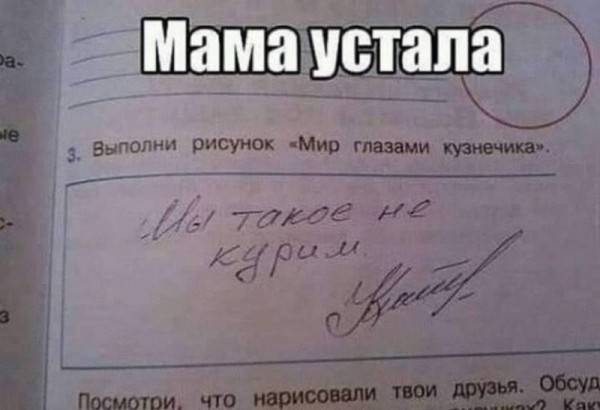 Мама устала
ра-
ые
3. Выполни рисунок «Мир глазами кузнечика».
с-
Мы такое не
курим.
з
Посмотри, что нарисовали твои друзья. Обсуд